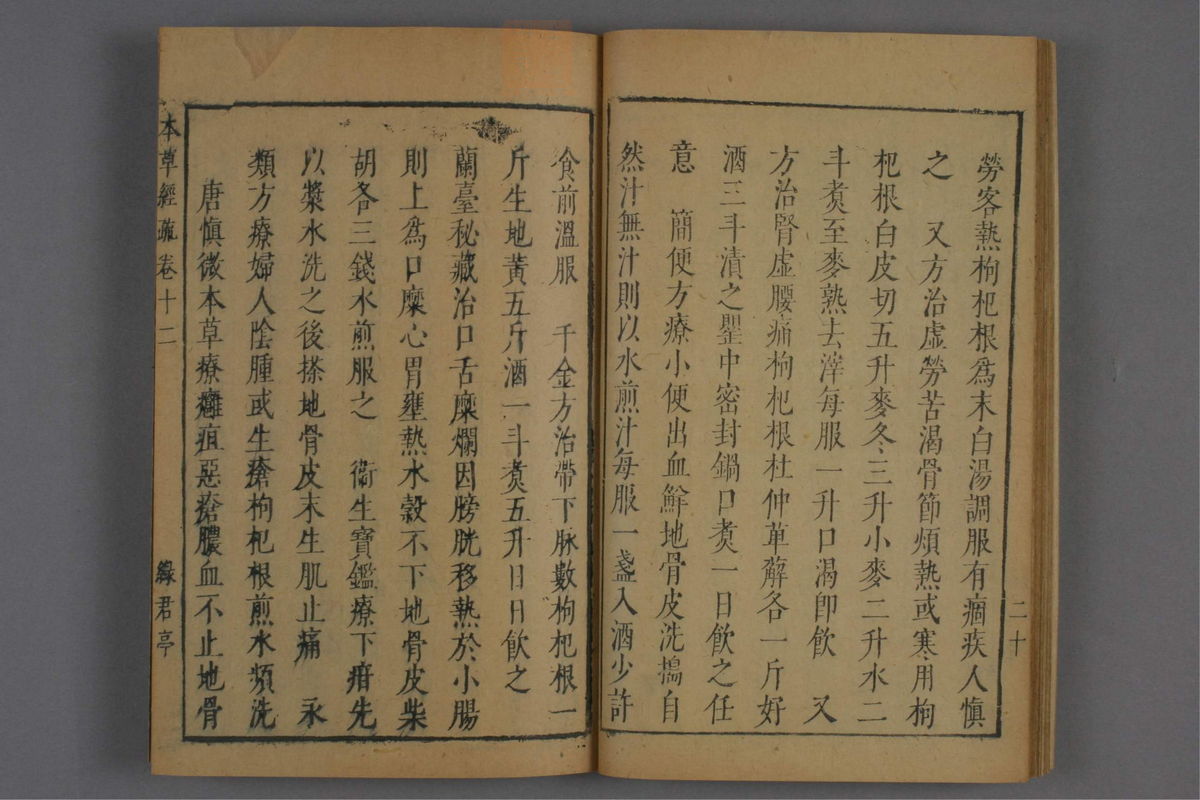 勞客熱枸杞根爲末白湯調服有痼疾人愼
之　又方治虛勞苦渴骨節煩熱或寒用枸
杞根白皮切五升麥冬三升小麥二升水二
斗煑至麥熟去滓每服一升口渴卽飮　又
方治腎虛腰痛枸杞根杜仲萆薢各一斤好
酒三斗漬之罌中密封鍋口煑一日飮之任
意　簡便方療小便出血鮮地骨皮洗搗自
然汁無汁則以水煎汁每服一盞入酒少許
二十
食前溫服　千金方治帶下脉數枸杞根一
斤生地黃五斤酒一斗煑五升日日飮之
蘭臺秘藏治口舌糜爛因膀胱移熱於小腸
則上爲口糜心胃壅熱水穀不下地骨皮柴
胡各三錢水煎服之　衞生寶鑑療下疳先
以漿水洗之後搽地骨皮末生肌止痛　永
類方療婦人陰腫或生瘡枸杞根煎水頻洗
唐愼微本草療癰疽惡瘡膿血不止地骨
本草經疏卷十二
綠君亭